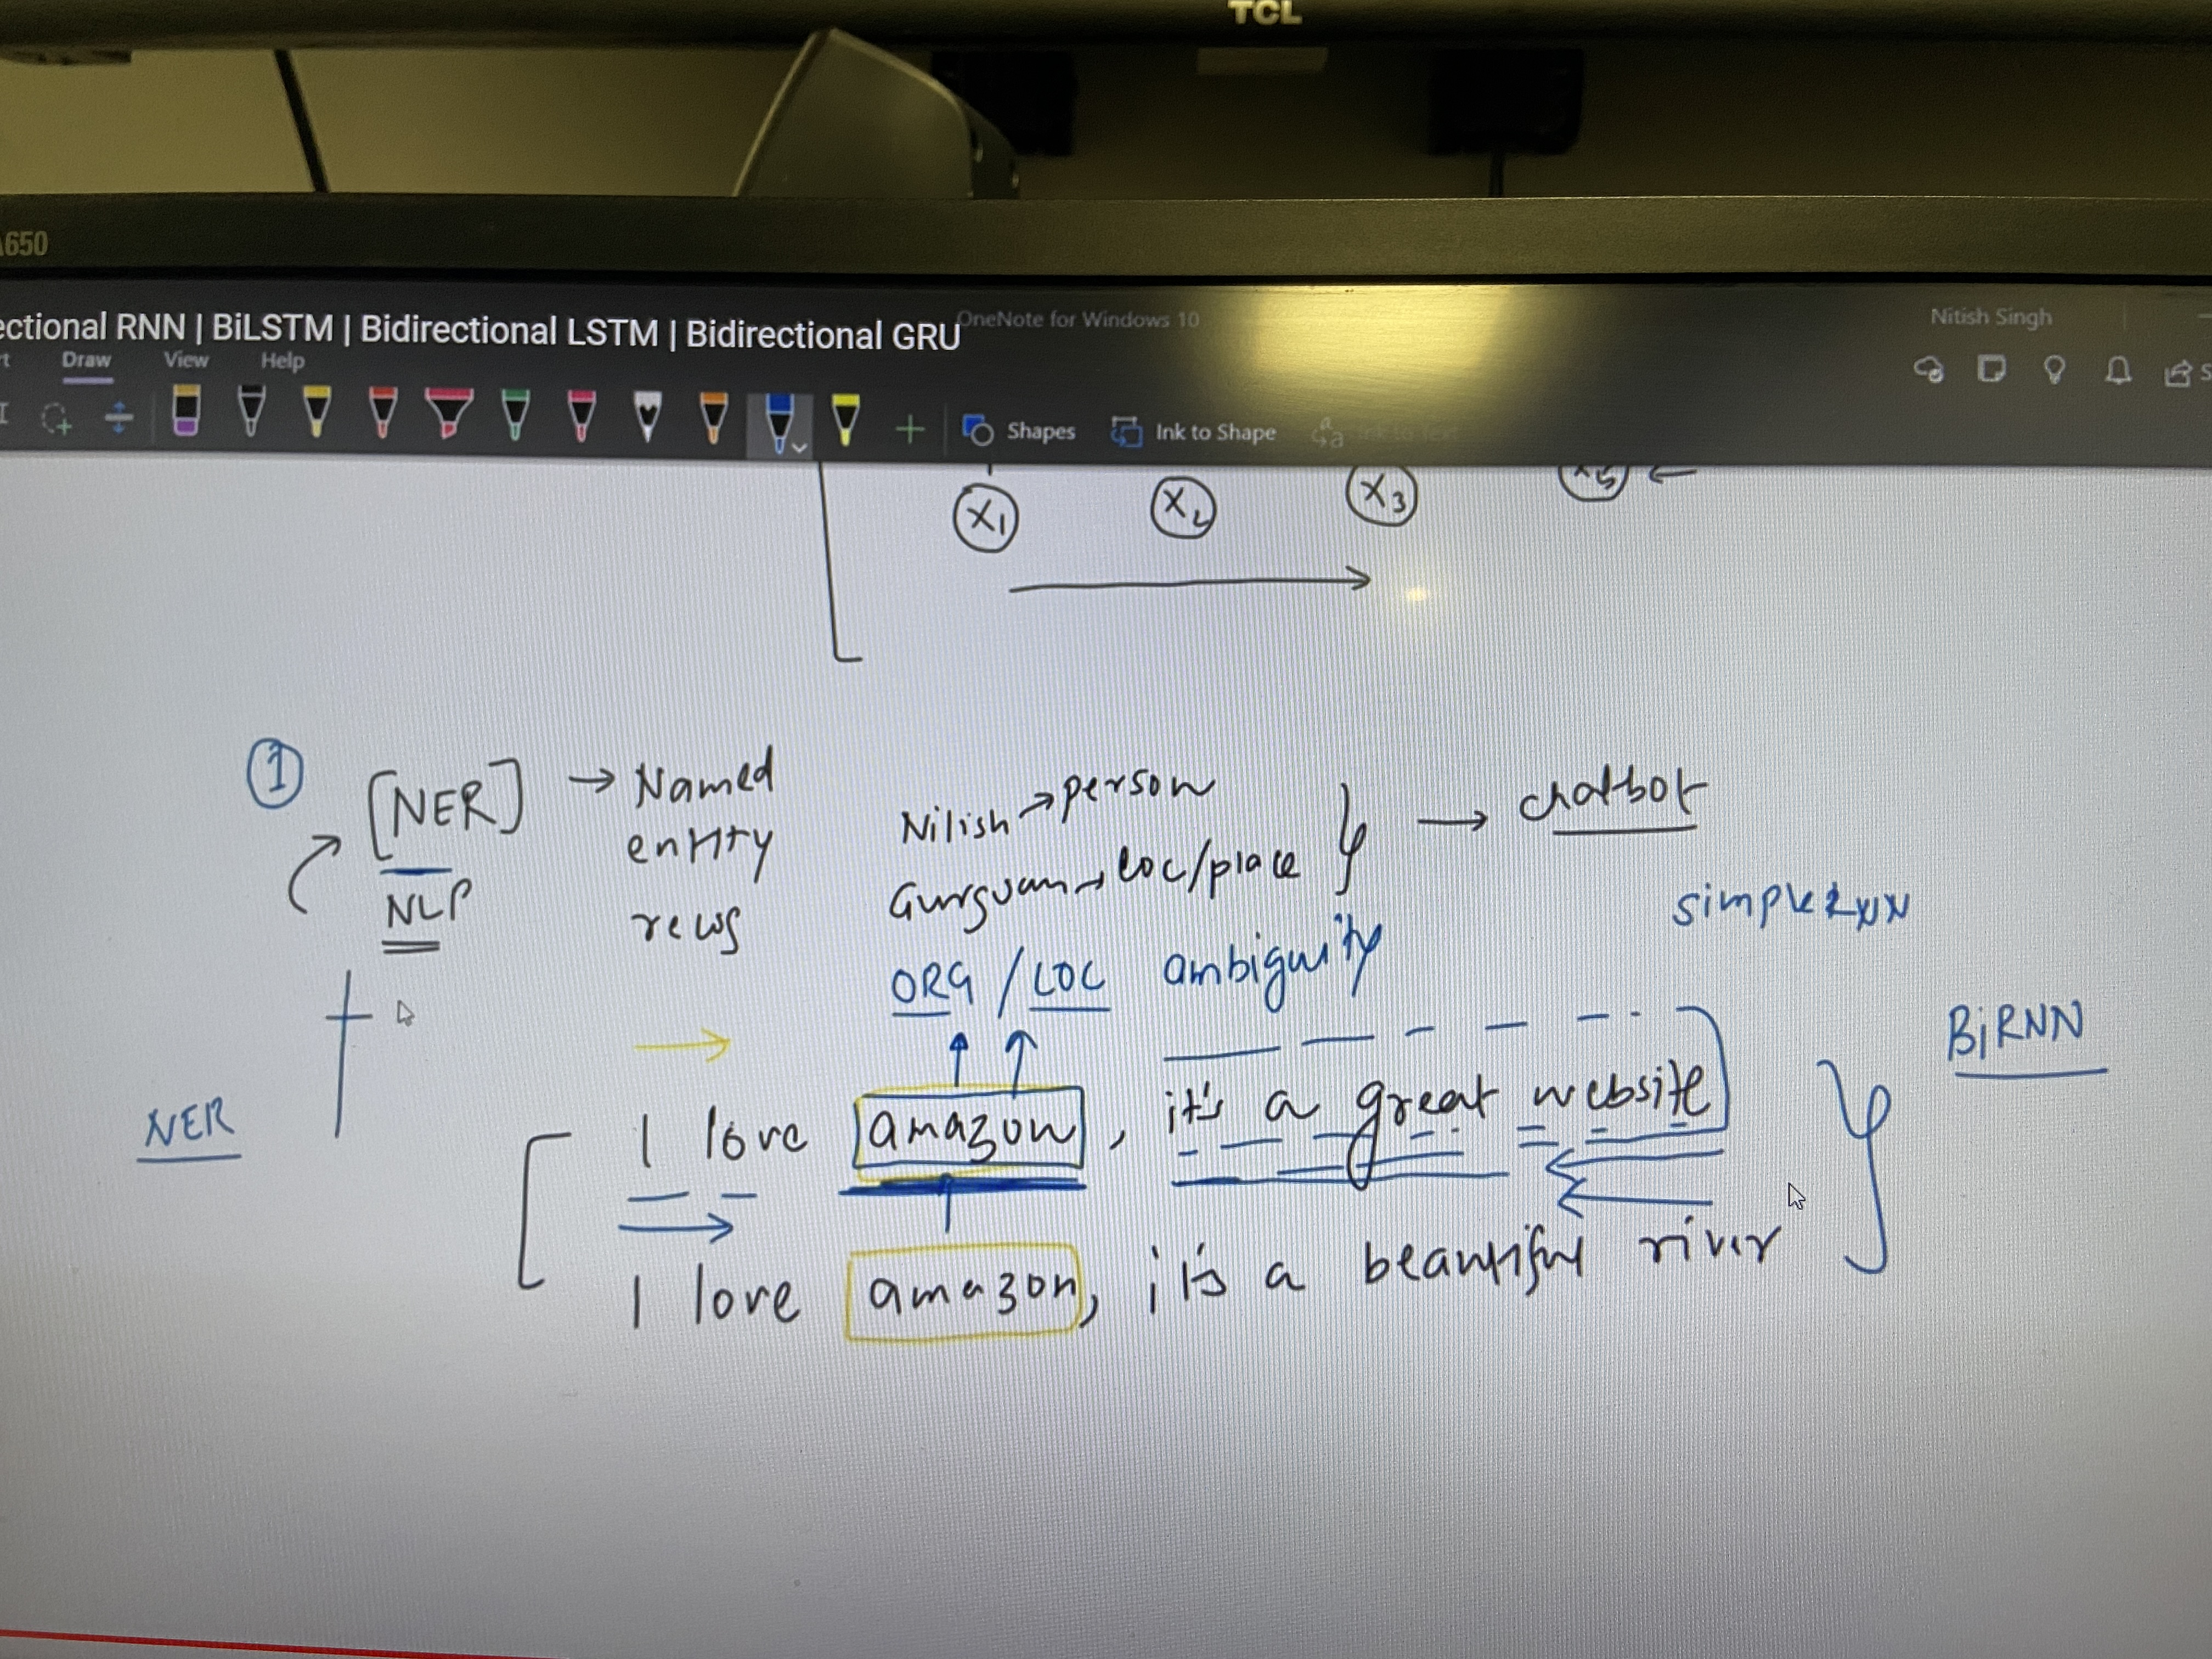 TCL
A650
ectional RNN | BiLSTM | Bidirectional LSTM | Bidirectional GRU
OneNote for Windows 10
Nitish Singh
Draw View Help
Shapes Ink to Shape
X1 X2 X3 X5
1 [NER] → Named entity
Nitish → person
Gurgoan → loc/place
→ chatbot
NLP
simple RNN
ORG / LOC ambiguity
BiRNN
NER
I love amazon, it's a great website
I love amazon, it's a beautiful river